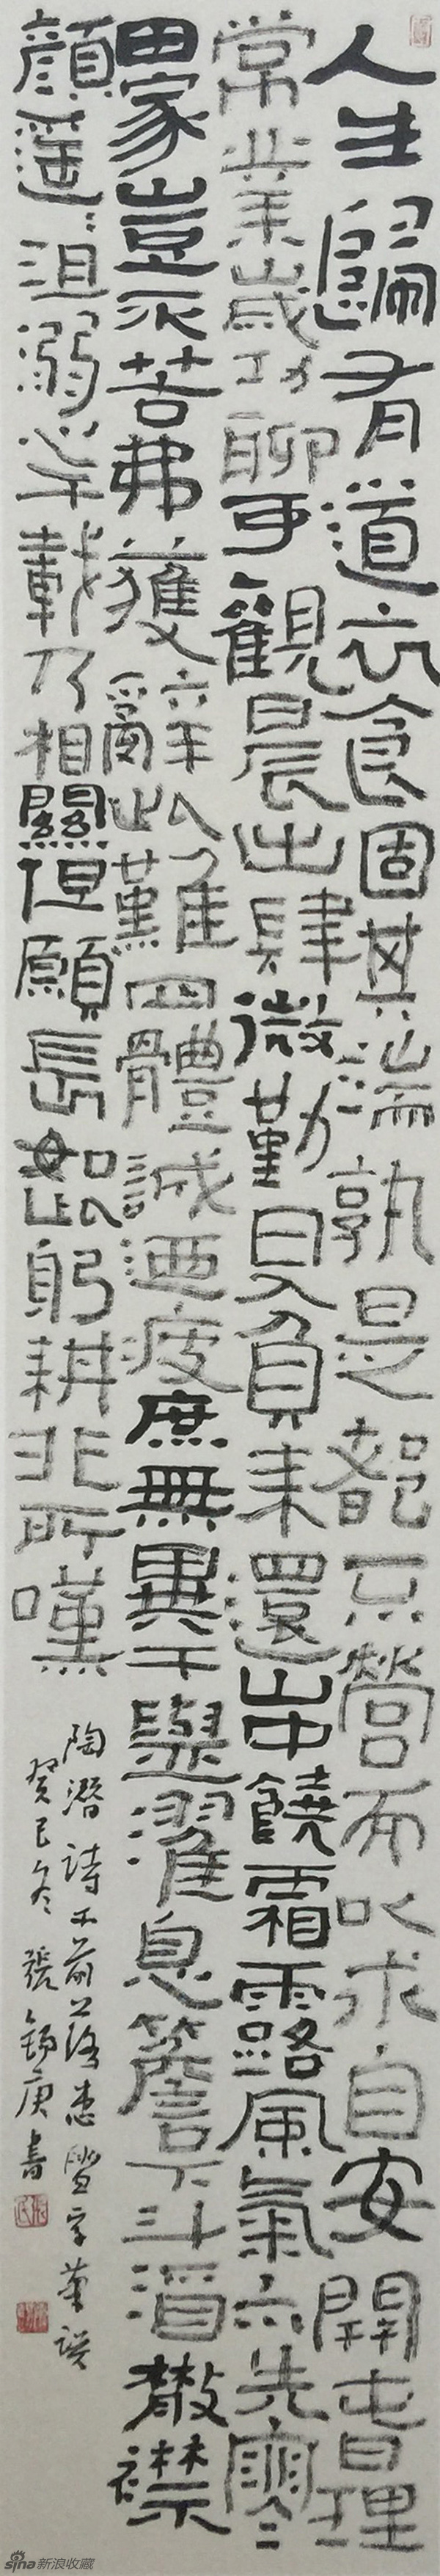 人生歸有道衣食固其端孰是都不營而以求自安開春理
常業歲功聊可觀晨出肆微勤日入負耒還山中饒霜露風氣亦先寒
田家豈不苦弗獲辭此難四體誠迺疲庶無異干盥濯息簷下斗酒散襟
顏遥〻沮溺心千載乃相關但願長如此躬耕非所嘆
陶潛詩干前落患盥字筆誤
癸巳冬張錫庚書
sina新浪收藏